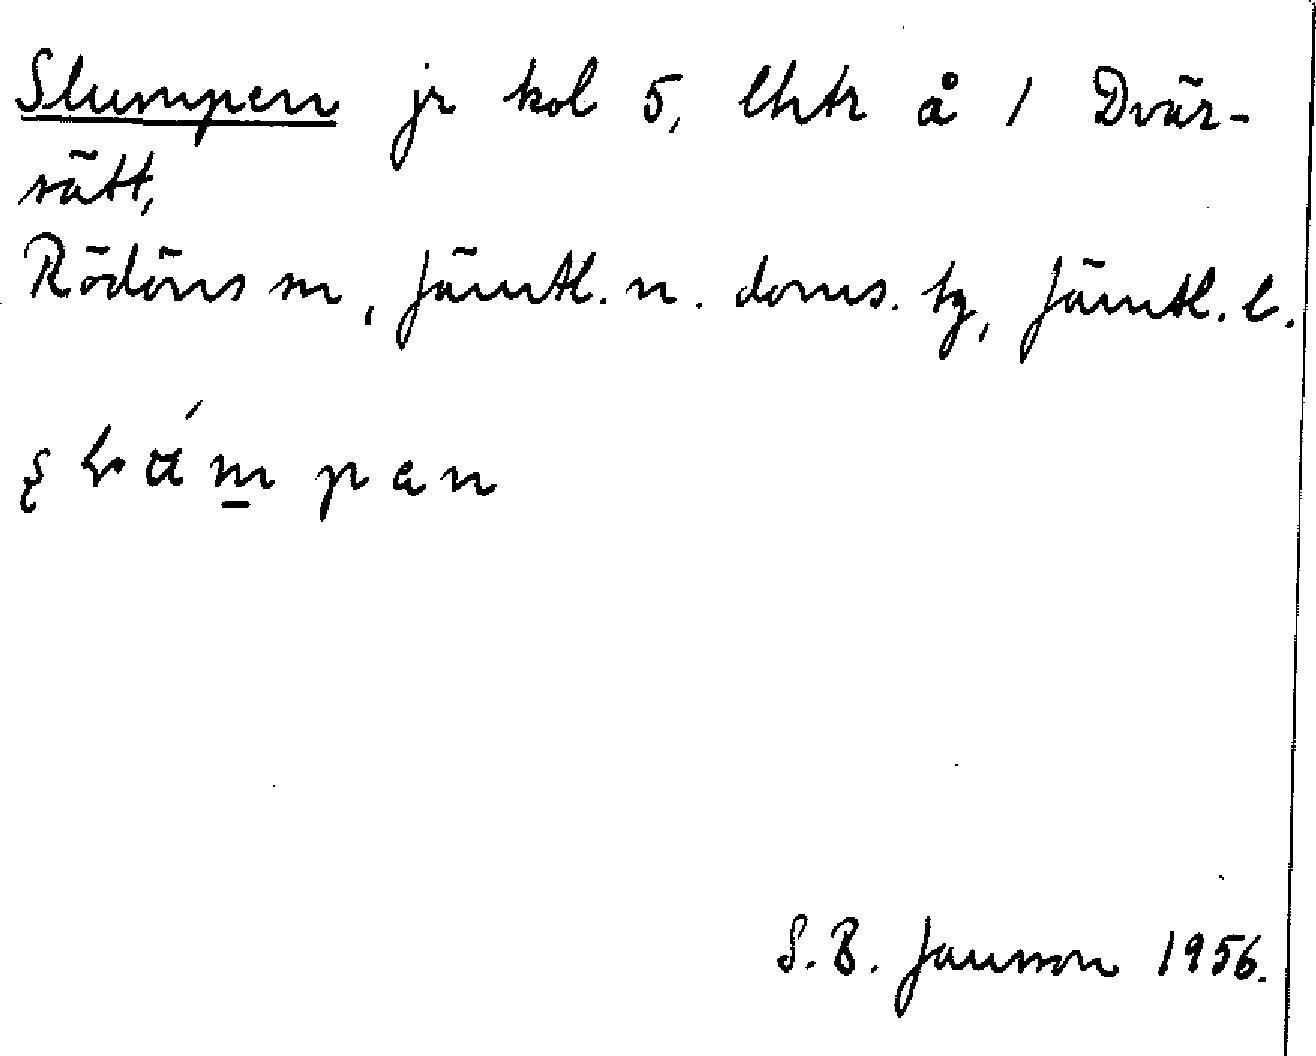 Slumpen jr kol 5, lhtr å 1 Dvär-
sätt,
Rödöns sn, Jämtl. n. doms. tg, Jämtl. l.
S. B. Jansson 1956.